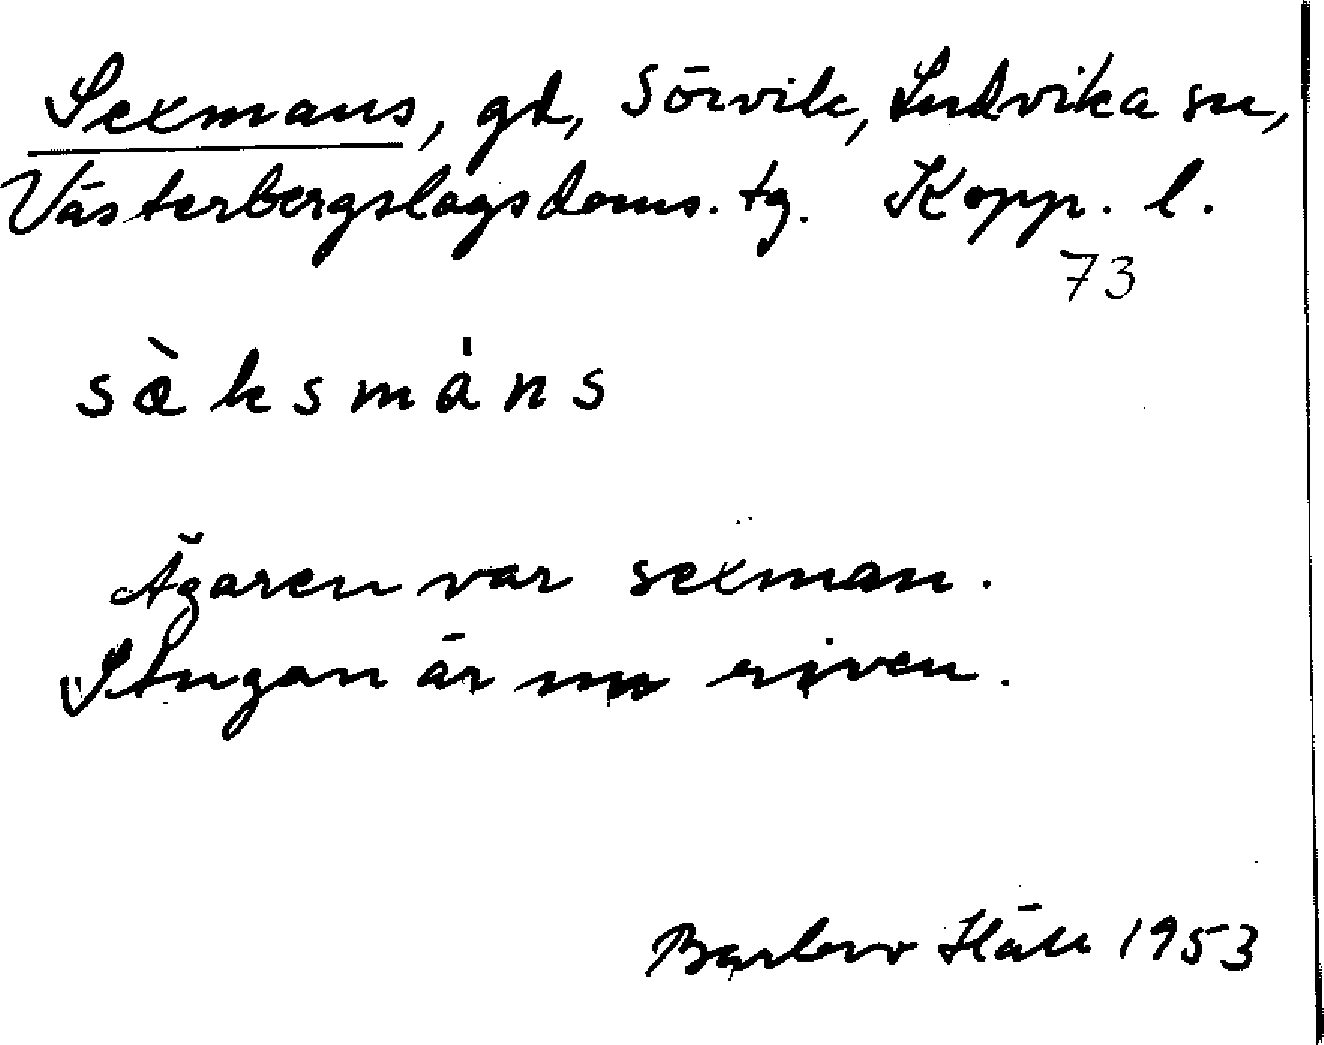 Sexmans, gd, Sörvik, Ludvika sn,
Västerbergslags doms. tg. Kopp. l.
73
sæ̀ksmáns
Ägaren var sexman.
Stugan är nu riven.
1953